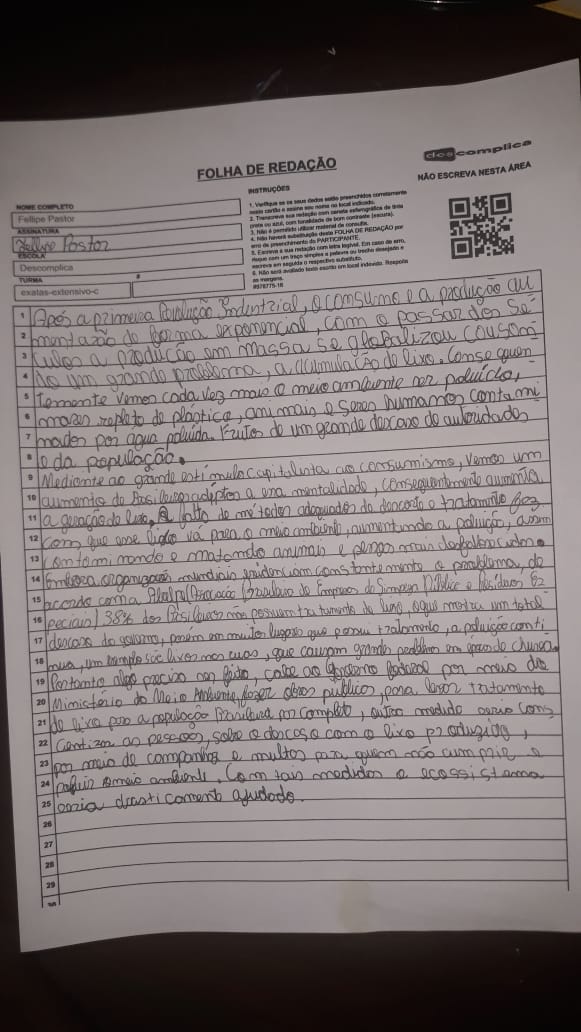 descomplica
FOLHA DE REDAÇÃO
NÃO ESCREVA NESTA ÁREA
NOME COMPLETO
Fellipe Pastor
ASSINATURA
Fellipe Pastor
ESCOLA
Descomplica
TURMA
exatas-extensivo-c
INSTRUÇÕES
1. Verifique se os seus dados estão preenchidos corretamente
neste cartão e assine seu nome no local indicado.
2. Transcreva sua redação com caneta esferográfica de tinta
preta ou azul, com tonalidade de bom contraste (escura).
3. Não é permitido utilizar material de consulta.
4. Não haverá substituição desta FOLHA DE REDAÇÃO por
erro de preenchimento do PARTICIPANTE.
5. Escreva a sua redação com letra legível. Em caso de erro,
risque com um traço simples a palavra ou trecho desejado e
escreva em seguida o respectivo substituto.
6. Não será avaliado texto escrito em local indevido. Respeite
as margens.
#578775-18
1 Após a primeira Revolução Industrial, o consumo e a produção au
2 mentarão de forma exponencial, com o passar dos sé
3 culos a produção em massa se globalizou
4 do um grande problema, a acumulação de lixo. Conse quen
5 temente vemos cada vez mais o meio ambiente ser poluído,
6 mares repleto de plástico, animais e seres humanos contami
7 nados por agua poluida. Frutos de um grande descaso de autoridades
8 e da população.
9 Mediante ao grande estímulo capitalista ao consumismo, vemos um
10 aumento de Brasileiros adeptos a essa mentalidade, consequentemente aumenta
11 a geração de lixo, a falta de métodos adequados de descarte e tratamento faz
12 com que esse lixo vá para o meio ambiente, aumentando a poluição, assim
13 contaminando e matando animais e
14 Embora organizações mundiais evidenciam constantemente o problema, de
15 acordo com a Abralpe (Associação Brasileira de Empresas de Limpeza Pública e Resíduos Es
16 peciais) 38% dos Brasileiros não possuem tratamento de lixo, o que mostra um total
17 descaso do governo, porém em muitos lugares que possui tratamento, a poluição conti
18 nua, um exemplo são lixos nas ruas, que causam grandes problema em grande chuvas.
19 Portanto algo preciso ser feito, cabe ao Governo Federal por meio do
20 Ministério do Meio Ambiente, fazer obras publicas, para levar tratamento
21 de lixo para a população Brasileira por completo, outra medida seria cons
22 centizar as pessoas, sobre o descaso com o lixo produzido,
23 por meio de campanhas e multas para quem não cumprir e
24 poluir o meio ambiente. Com tais medidas o ecossistema
25 seria drasticamente ajudado.
26
27
28
29
30